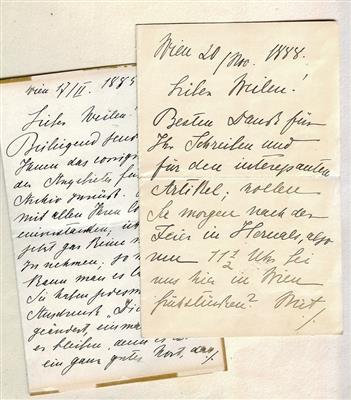 Wien 17/II. 1885
Lieber Weilen!
Beiliegend sende
Ihnen das corrig
des Angebots für
Archiv zurück.
mit allen Ihren
einverstanden,
jetzt gar keine
zu nehmen; so
kann man es
Sie haben
Ausdruck „Die
geändert, einmal
es bleiben, denn es
ein ganz gutes Wort, das
Wien 20/Nov. 1888.
Lieber Weilen!
Besten Dank für
Ihr Schreiben und
für den interessanten
Artikel; wollen
Sie morgen nach der
Feier in Hernals, also
um 11 1/2 Uhr bei
uns hier in Wien
frühstücken? Mit